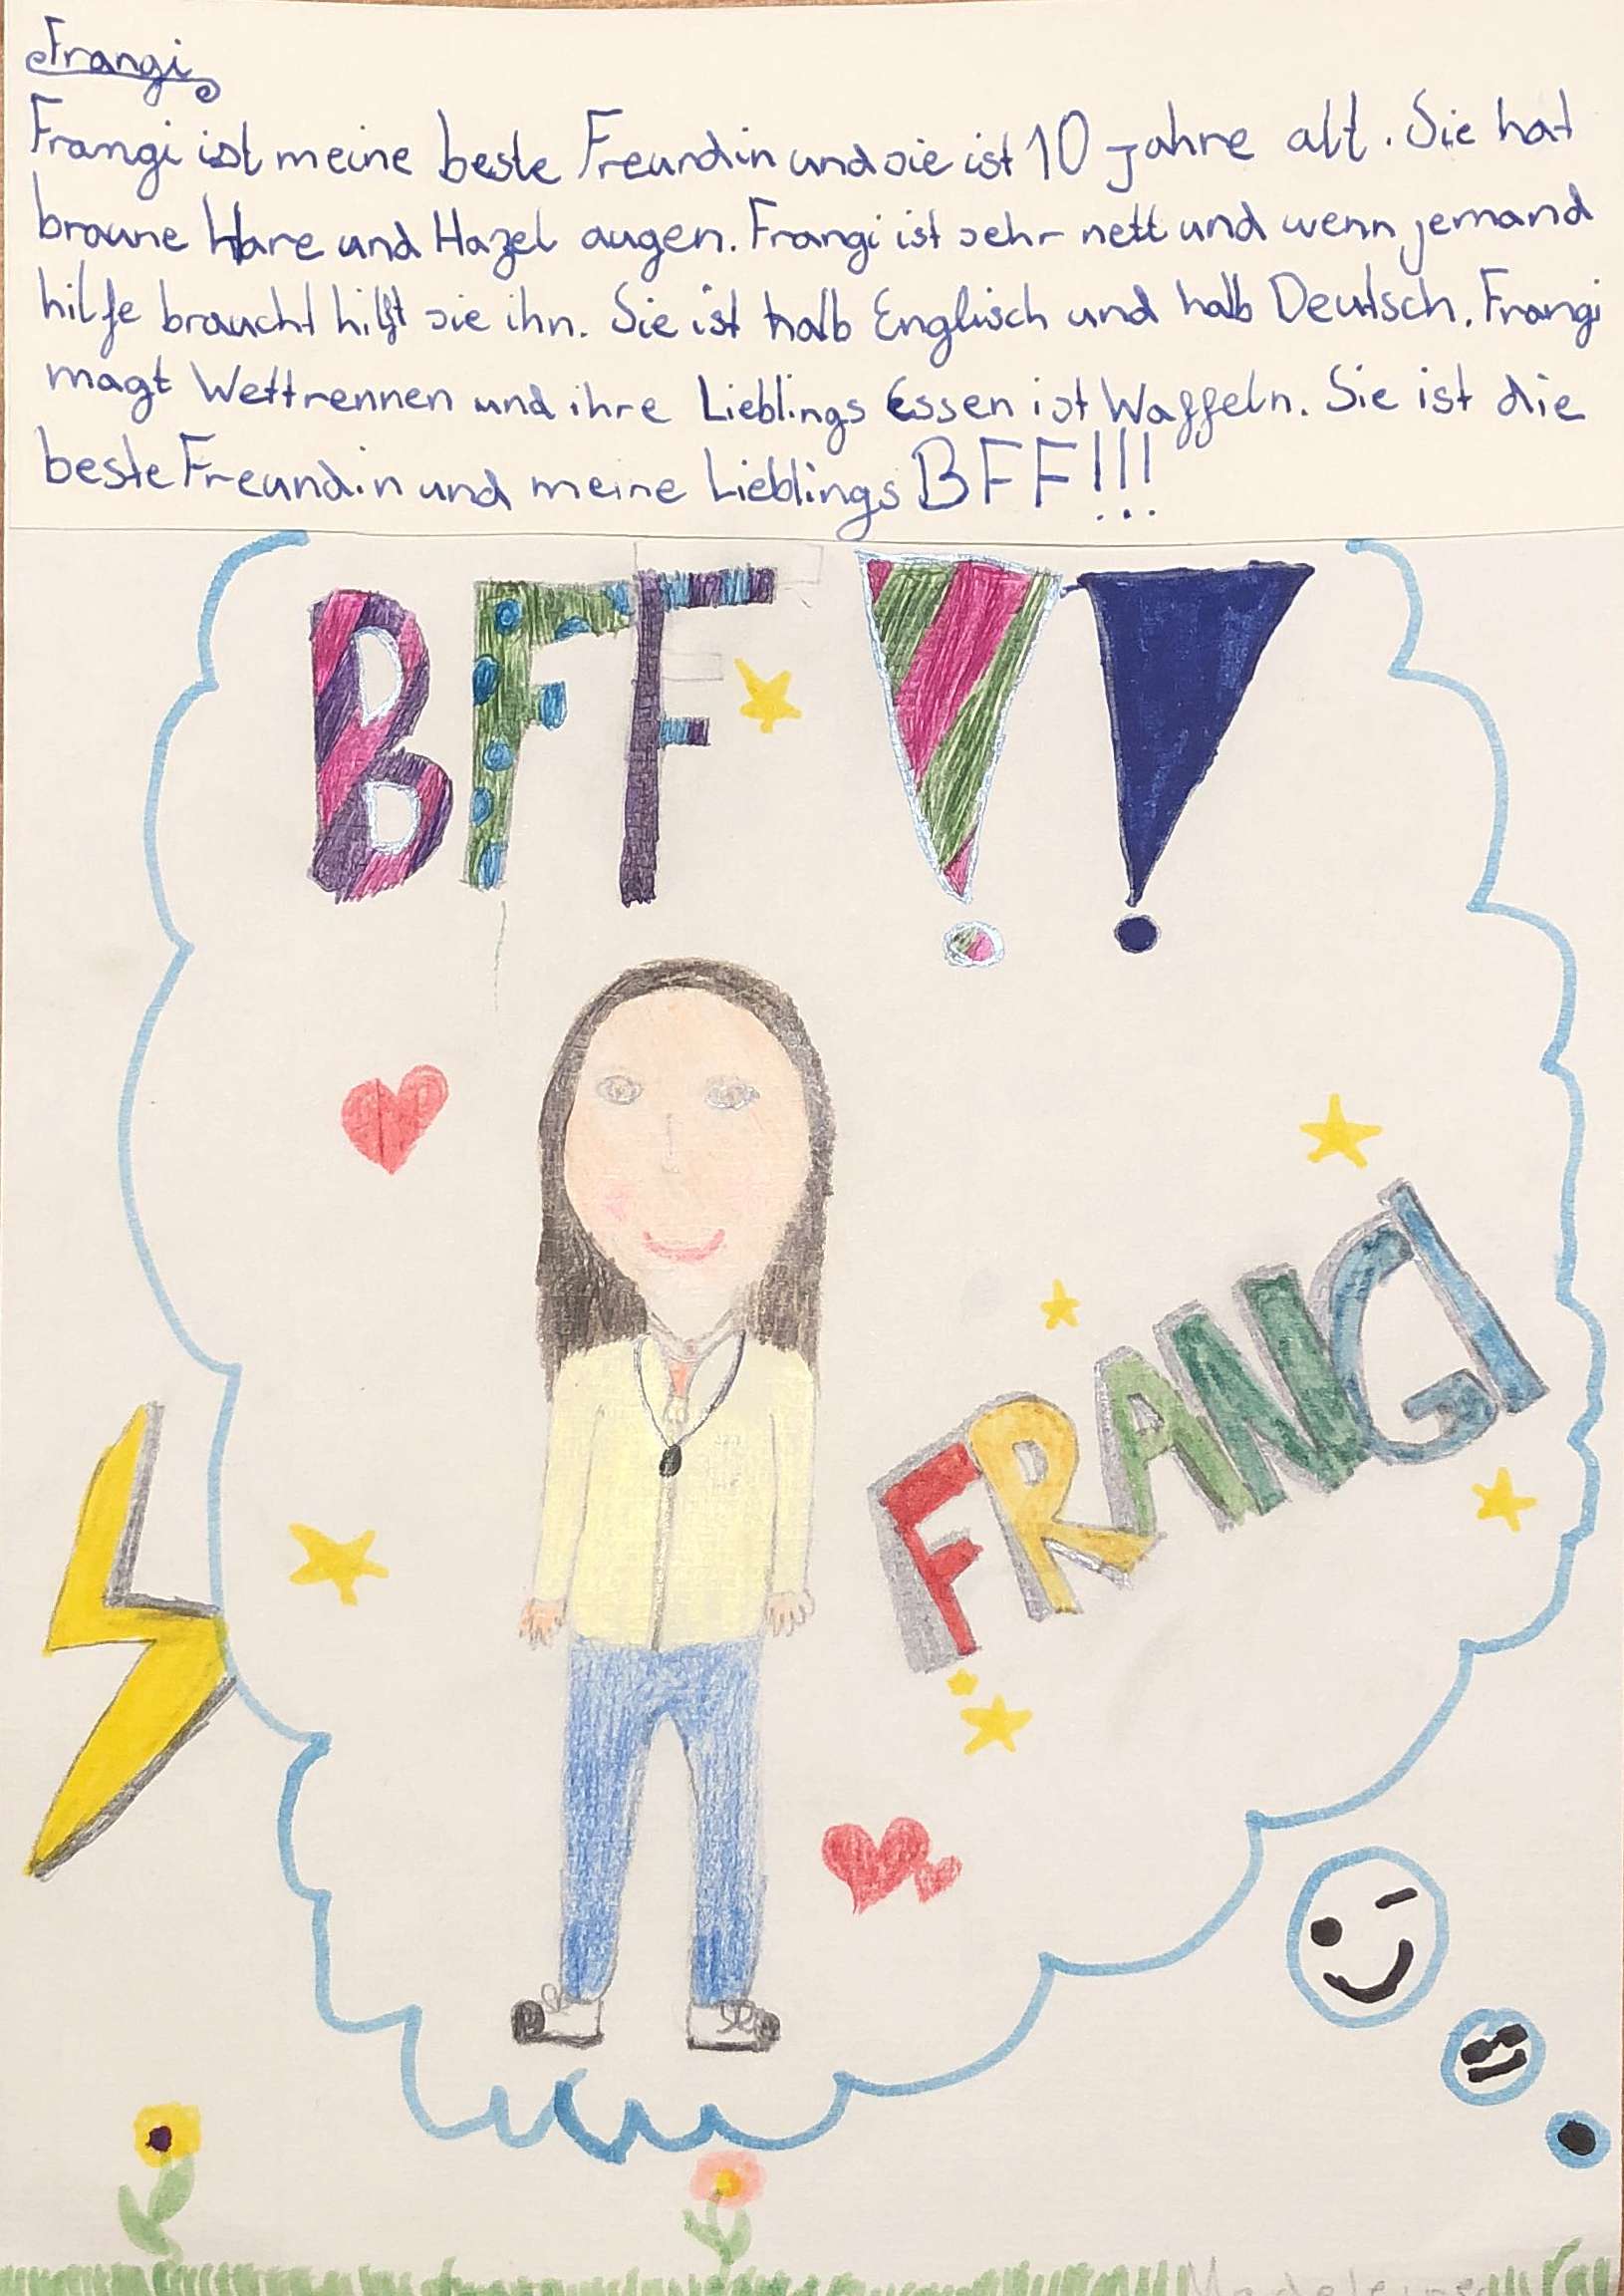 Frangi
Frangi ist meine beste Freundin und sie ist 10 jahre alt. Sie hat
braune Hare und Hazel augen. Frangi ist sehr nett und wenn jemand
hilfe braucht hilft sie ihn. Sie ist halb Englisch und halb Deutsch. Frangi
magt Wettrennen und ihre Lieblings Essen ist Waffeln. Sie ist die
beste Freundin und meine Lieblings BFF!!!
BFF !!
FRANGI